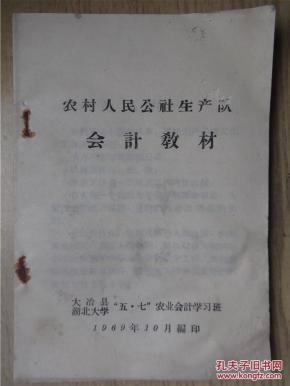 农村人民公社生产队
会計教材
大冶县
湖北大学 "五·七" 农业会計学习班
1969年10月編印
孔夫子旧书网